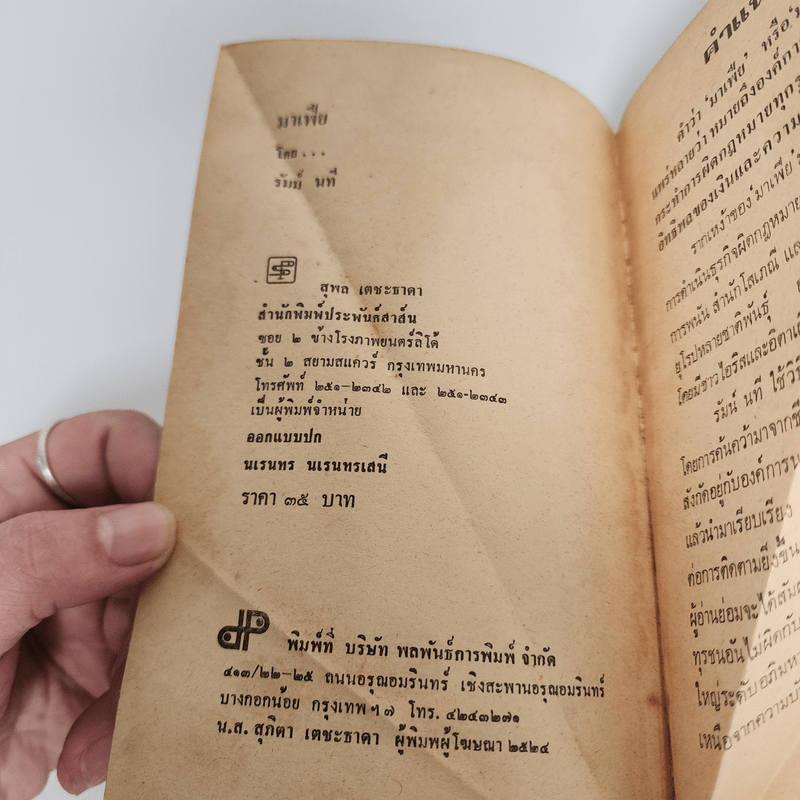 มาเฟีย
โดย...
รัมย์ นที
สุพล เตชะธาดา
สำนักพิมพ์ประพันธ์สาส์น
ซอย ๒ ข้างโรงภาพยนตร์ลิโด้
ชั้น ๒ สยามสแควร์ กรุงเทพมหานคร
โทรศัพท์ ๒๕๑-๒๓๔๒ และ ๒๕๑-๒๓๔๓
เป็นผู้พิมพ์จำหน่าย
ออกแบบปก
นเรนทร นเรนทรเสนี
ราคา ๓๕ บาท
พิมพ์ที่ บริษัท พลพันธ์การพิมพ์ จำกัด
๔๑๓/๒๒-๒๕ ถนนอรุณอมรินทร์ เชิงสะพานอรุณอมรินทร์
บางกอกน้อย กรุงเทพฯ ๗ โทร. ๔๒๔๓๒๗๑
น.ส. สุภิตา เตชะธาดา ผู้พิมพผู้โฆษณา ๒๕๒๔
คำว่า 'มาเฟีย' หรือ
แพร่หลายว่า หมายถึงองค์การ
กระทำการผิดกฎหมายทุก
อิทธิพลของเงินและความ
รากเหง้าของ 'มาเฟีย'
การดำเนินธุรกิจผิดกฎหมาย
การพนัน สำนักโสเภณี และ
ยุโรปหลายชาติพันธุ์
โดยมีชาวไอริสและอิตาเลี
รัมน์ นที ใช้วิ
โดยการค้นคว้ามาจาก
สังกัดอยู่กับองค์การ
แล้วนำมาเรียบเรียง
ต่อการติดตามยิ่งขึ้น
ผู้อ่านย่อมจะได้สัม
ทุรชนอันไม่ผิดกับ
ใหญ่ระดับอภิมหา
เหนือจากความ